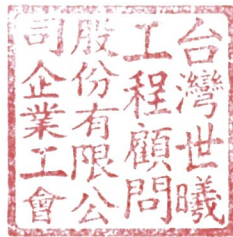 台灣世曦
工程顧問
股份有限公
司企業工會